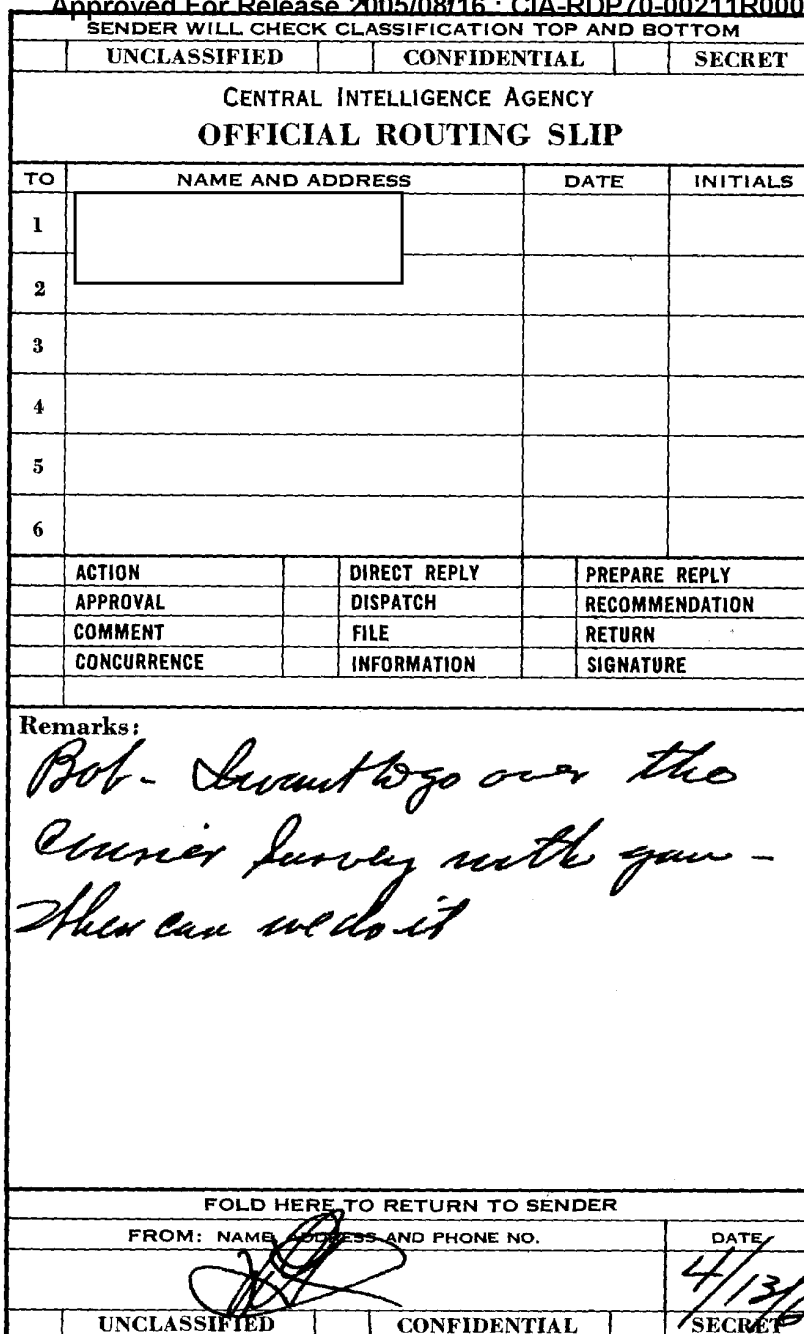 Approved For Release 2005/08/16 : CIA-RDP70-00211R000
SENDER WILL CHECK CLASSIFICATION TOP AND BOTTOM
UNCLASSIFIED CONFIDENTIAL SECRET
CENTRAL INTELLIGENCE AGENCY
OFFICIAL ROUTING SLIP
TO NAME AND ADDRESS DATE INITIALS
1
2
3
4
5
6
ACTION DIRECT REPLY PREPARE REPLY
APPROVAL DISPATCH RECOMMENDATION
COMMENT FILE RETURN
CONCURRENCE INFORMATION SIGNATURE
Remarks:
Bob - I want to go over the
Courier Survey with you -
When can we do it
FOLD HERE TO RETURN TO SENDER
FROM: NAME, ADDRESS AND PHONE NO. DATE
4/13/
UNCLASSIFIED CONFIDENTIAL SECRET